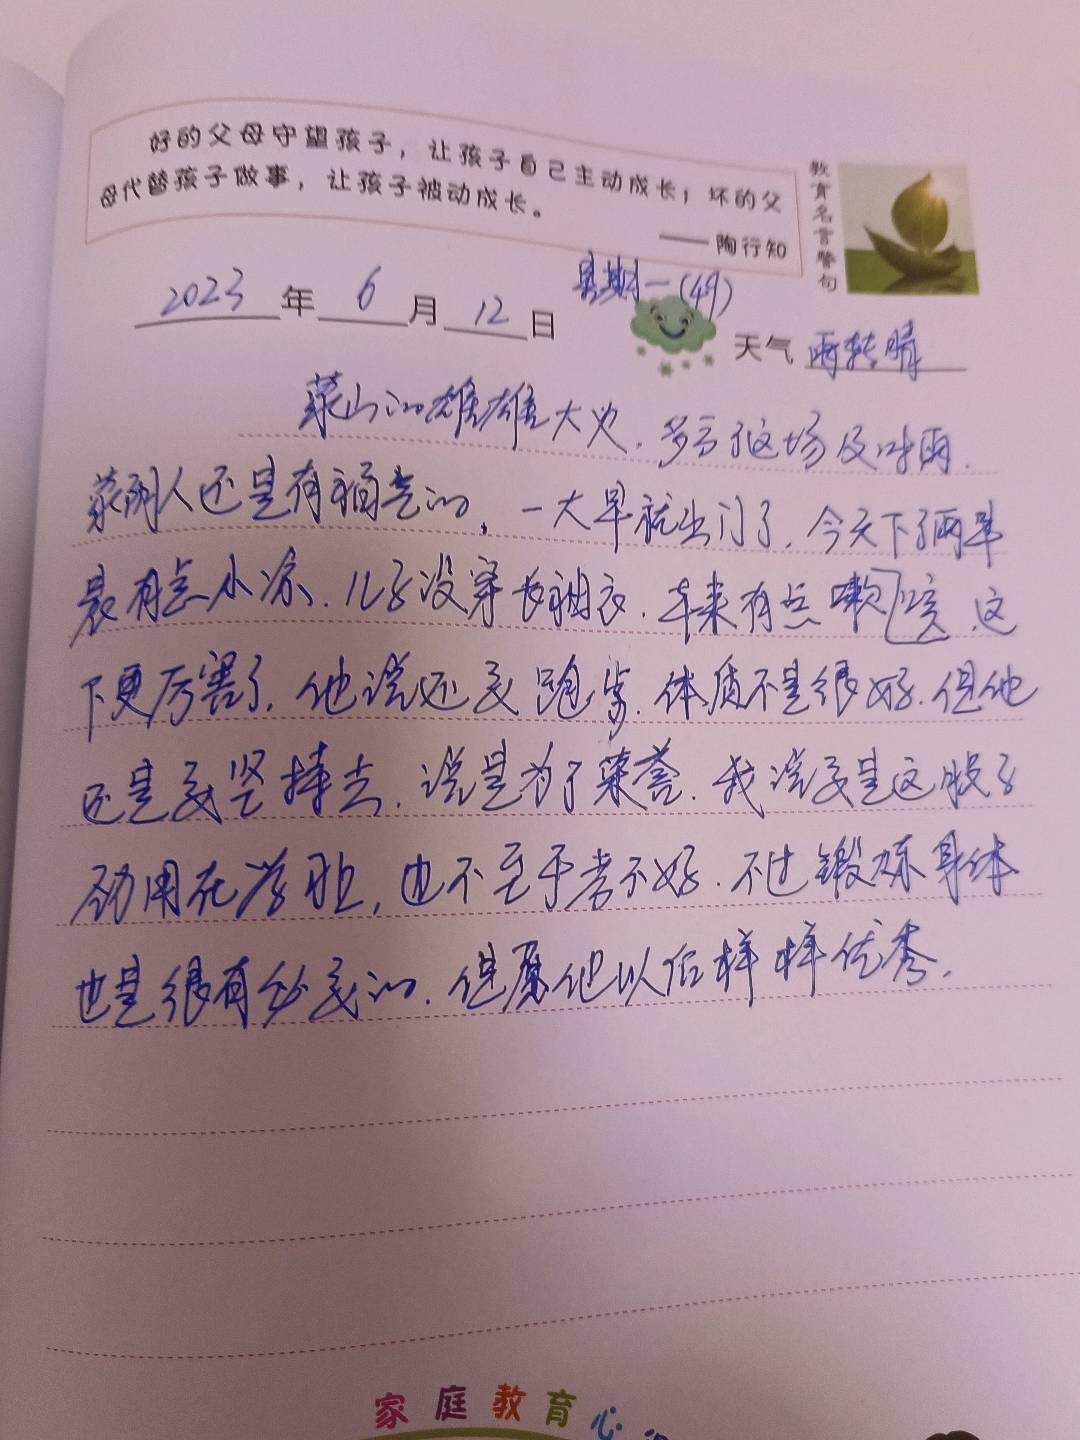 好的父母守望孩子，让孩子自己主动成长；坏的父
母代替孩子做事，让孩子被动成长。
——陶行知
教育名言警句
星期一(49)
2023年6月12日
天气 雨转晴
莱山的雄雄大火，多亏了这场及时雨.
莱阳人还是有福气的，一大早就出门了，今天下了雨早
晨有点小凉，儿子没穿长袖衣，本来有点嗽咳，这
下更厉害了，他说还要跑步，体质不是很好，但他
还是要坚持去，说是为了荣誉，我说要是这股子
劲用在学习上，也不至于考不好，不过锻炼身体
也是很有必要的，但愿他以后样样优秀.
家庭教育心